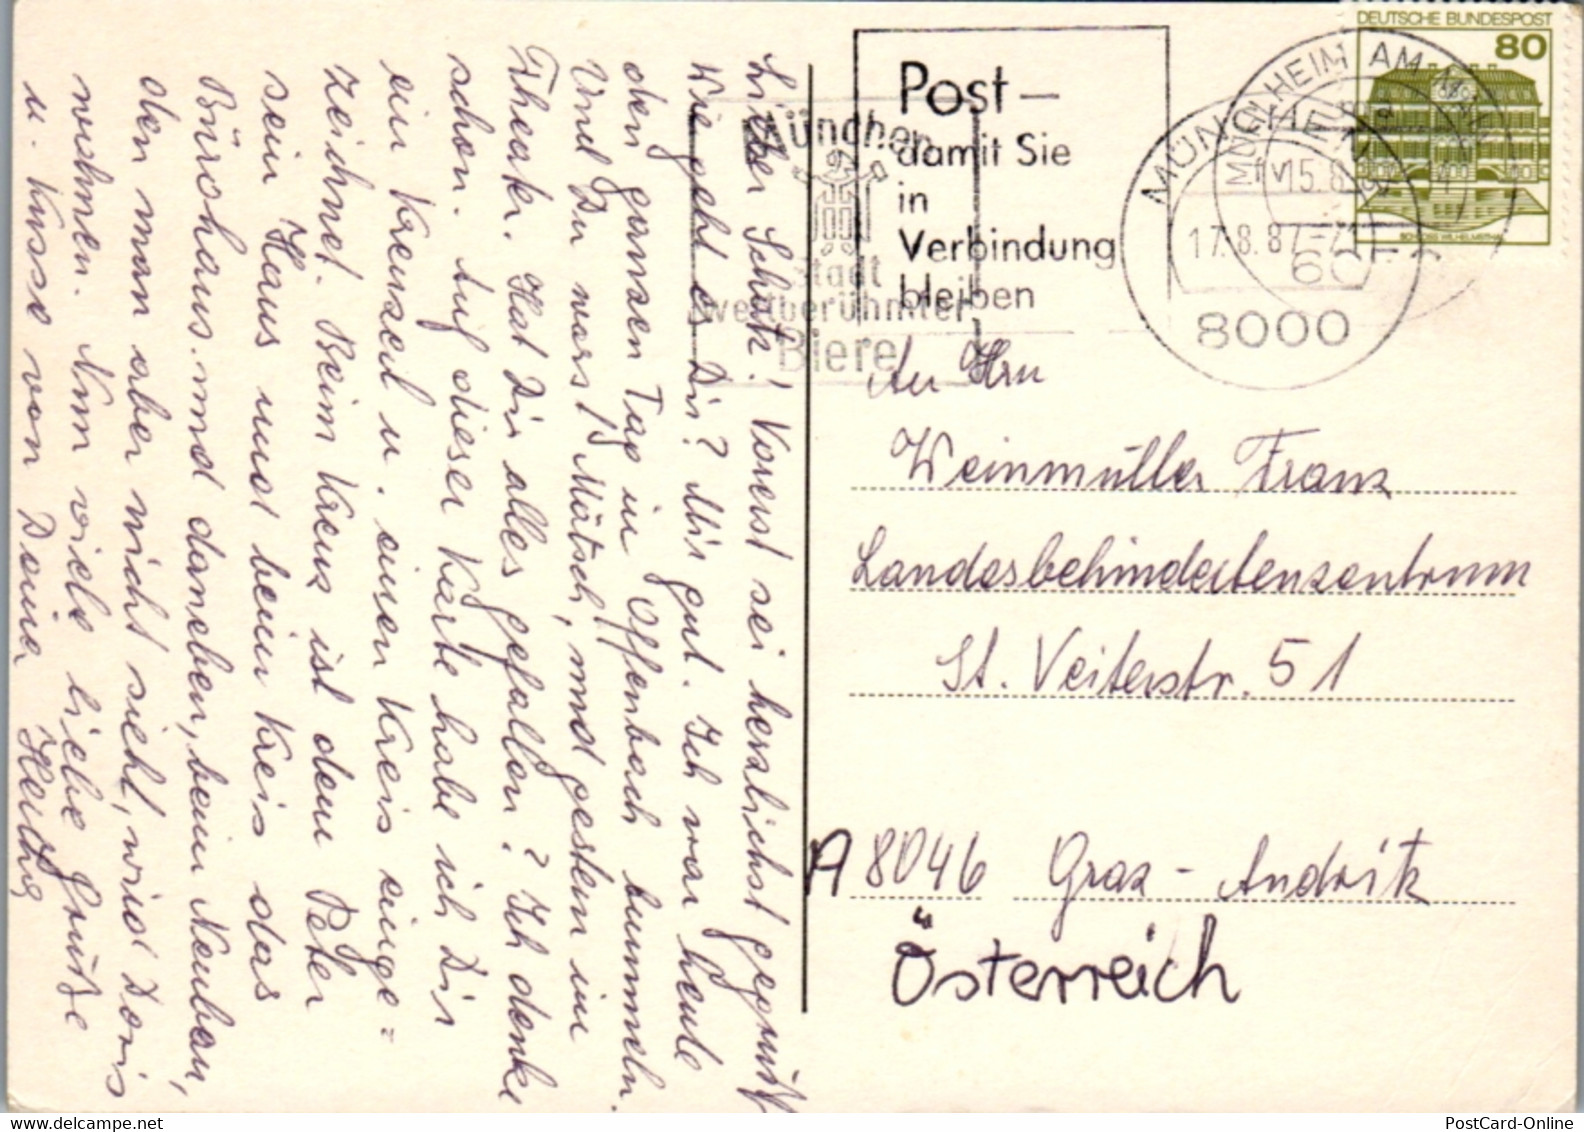 Lieber Schatz! Vorerst sei herzlichst gegrüßt
Wie geht es Dir? Mir gut. Ich war heute
den ganzen Tag in Offenbach bummeln.
Und Du warst Mätsch, und gestern im
Theater. Hat Dir alles gefallen? Ich denke
schon. Auf dieser Karte habe ich Dir
ein Kreuzerl u. einen Kreis einge=
zeihnet. Beim Kreuz ist dem Peter
sein Haus und beim Kreis das
Bürohaus. und daneben, beim Neubau,
den man aber nicht sieht, wird Doris
wohnen. Nun viele liebe Grüße
u. Küsse von Deina
DEUTSCHE BUNDESPOST
80
Post –
damit Sie
in
Verbindung
bleiben
München
Stadt
weltberühmter
Biere
MÜHLHEIM AM MAIN
MÜNCHEN
17.8.87
8000
An Hrn
Weinmüller Franz
Landesbehindertenzentrum
St. Veiterstr. 51
A 8046 Graz - Andritz
Österreich
PostCard-Online